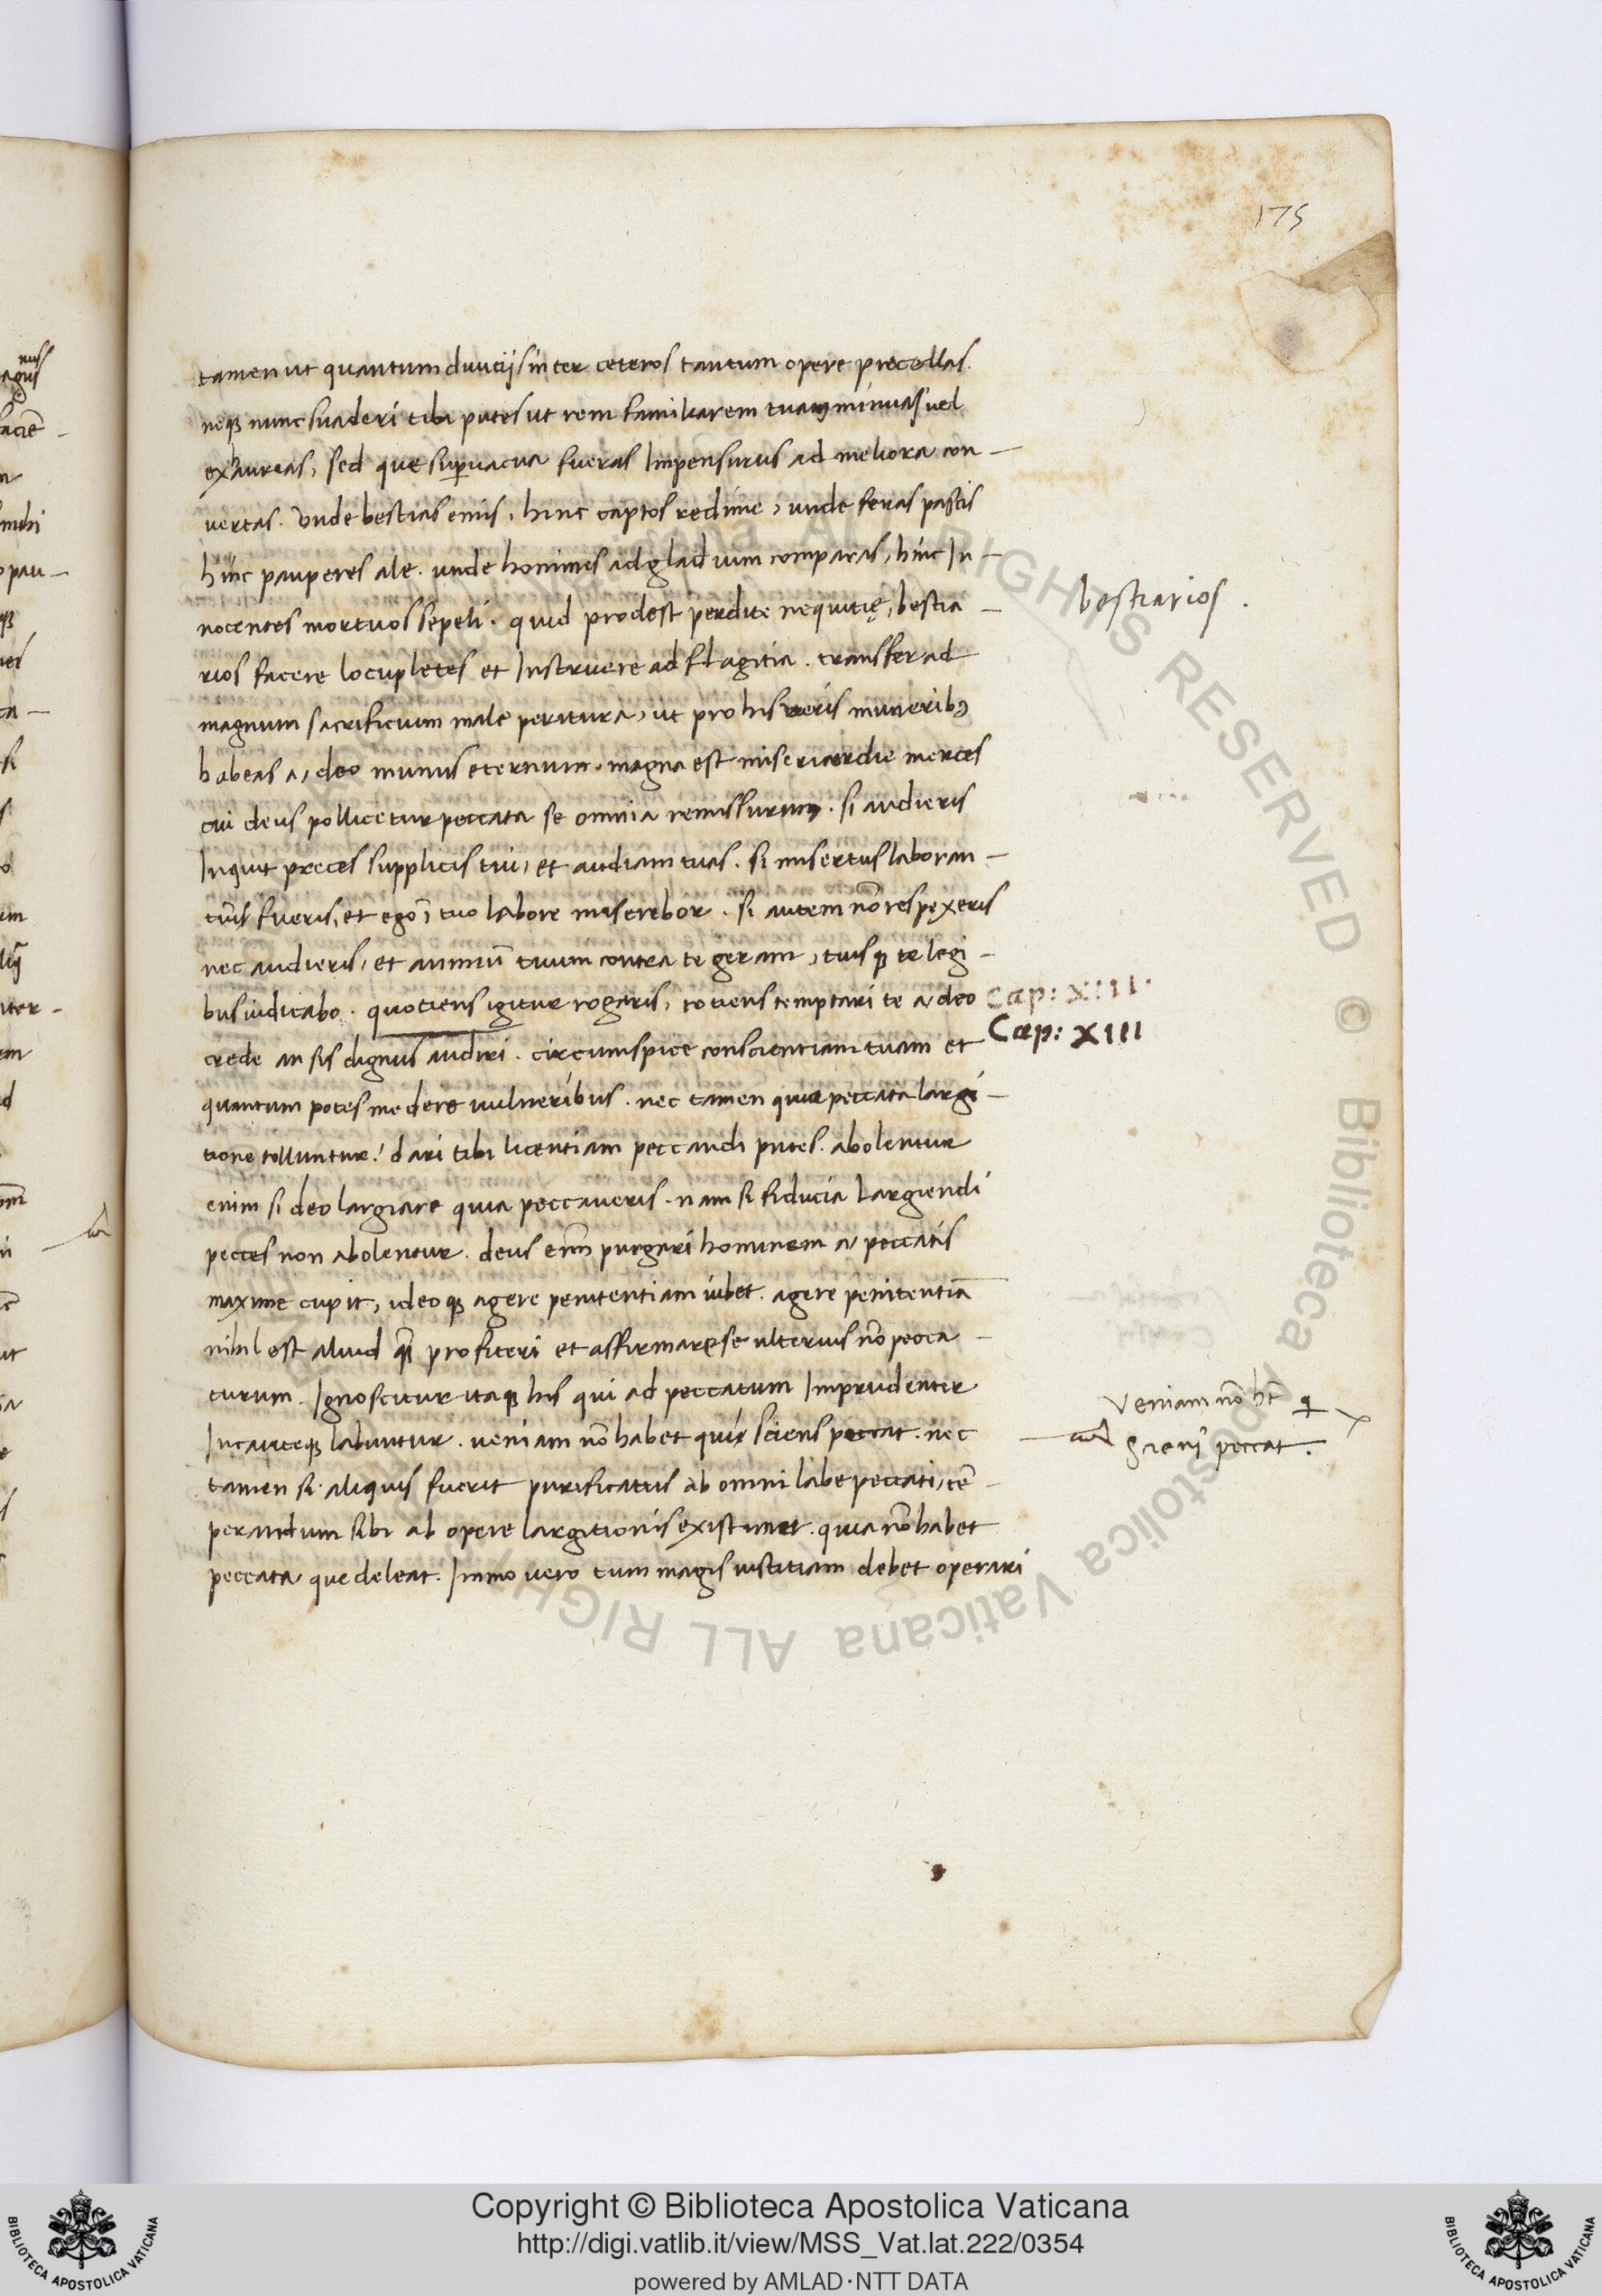 175
tamen ut quantum diuitijs inter ceteros tantum opere precellas.
neqꝫ nunc suaderi tibi putes ut rem familiarem tuam minuas uel
exaurias, sed que supuacua fueras Impensurus ad meliora con-
uertas. Vnde bestias emis, hinc captos redime, unde feras pascis
hinc pauperes ale. unde homines ad gladium comparas, hinc In-
nocentes mortuos sepeli. quid prodest perdite nequitię, bestia-
rios facere locupletes et Instruere ad flagitia. transfer ad
magnum sacrificium male peritura, ut pro his ueris muneribꝫ
habeas a, deo munus eternum. magna est misericordie merces
cui deus pollicetur peccata se omnia remissurum. si audieris
Inquit preces supplicis tui, et audiam tuas. si misertus laboran-
tiūs fueris, et ego ī tuo labore miserebor. si autem nō respexeris
nec audieris, et animū tuum contra te geram, tuisqꝫ te legi-
bus iudicabo. quotiens igitur rogaris, totiens temptari te a, deo
crede an sis dignus audiri. circumspice conscientiam tuam et
quantum potes medere uulneribus. nec tamen quia peccata largi-
tione tolluntur! dari tibi licentiam peccandi putes. abolentur
enim si deo largiare quia peccaueris. nam si fiducia largiendi
pecces non abolentur. deus enī purgari hominem a, peccatis
maxime cupit, ideoqꝫ agere penitentiam iubet. agere penitentiā
nihil est aliud q̄ profiteri et affirmare se ulterius nō pecca-
turum. Ignoscitur itaqꝫ his qui ad peccatum Imprudenter
Incauteqꝫ labuntur. ueniam nō habet qui sciens peccat. nec
tamen si aliquis fuerit purificatus ab omni labe peccati, tē-
perandum sibi ab opere largitionis existimet. quia nō habet
peccata que deleat. Immo uero tum magis iustitiam debet operari
bestiarios.
Cap: XIII.
Cap: XIII
Veniam nō ht̄ q
peccat.
ALL RIGHTS RESERVED © Biblioteca Apostolica Vaticana ALL RIGH
Copyright © Biblioteca Apostolica Vaticana
http://digi.vatlib.it/view/MSS_Vat.lat.222/0354
powered by AMLAD·NTT DATA
BIBLIOTECA APOSTOLICA VATICANA
BIBLIOTECA APOSTOLICA VATICANA